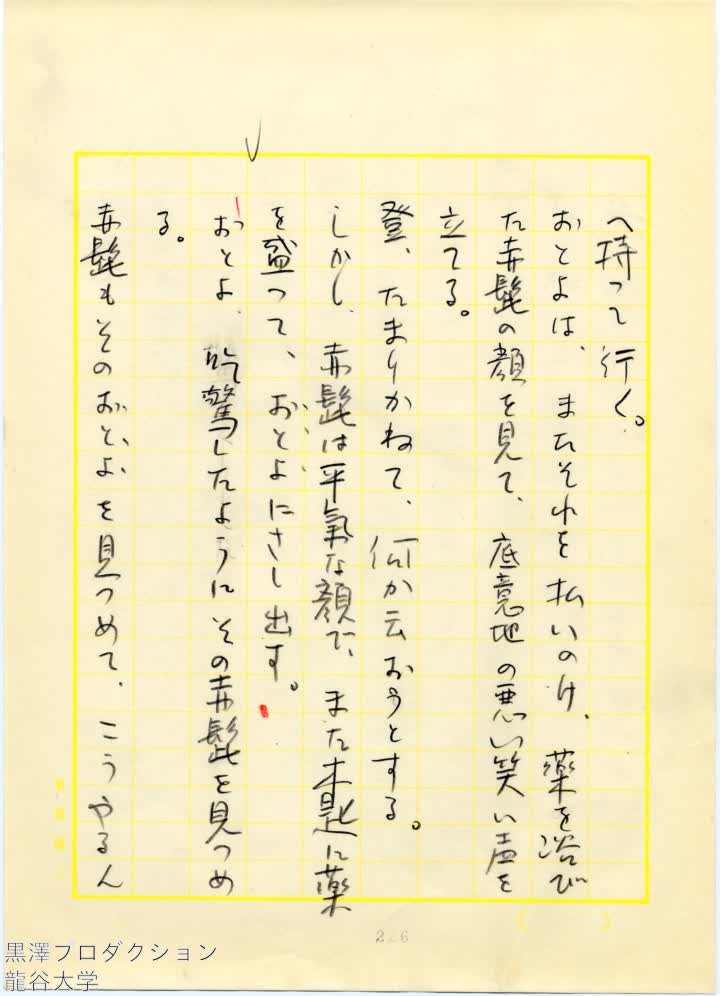 へ持って行く。
おとよは、またそれを払いのけ、薬を浴び
た赤髭の顔を見て、底意地の悪い笑い声を
立てる。
登、たまりかねて、何か云おうとする。
しかし、赤髭は平氣な顔で、また木匙に薬
を盛って、おとよにさし出す。
おとよ、吃驚したようにその赤髭を見つめ
る。
赤髭もそのおとよを見つめて、こうやるん
246
黒澤プロダクション
龍谷大学